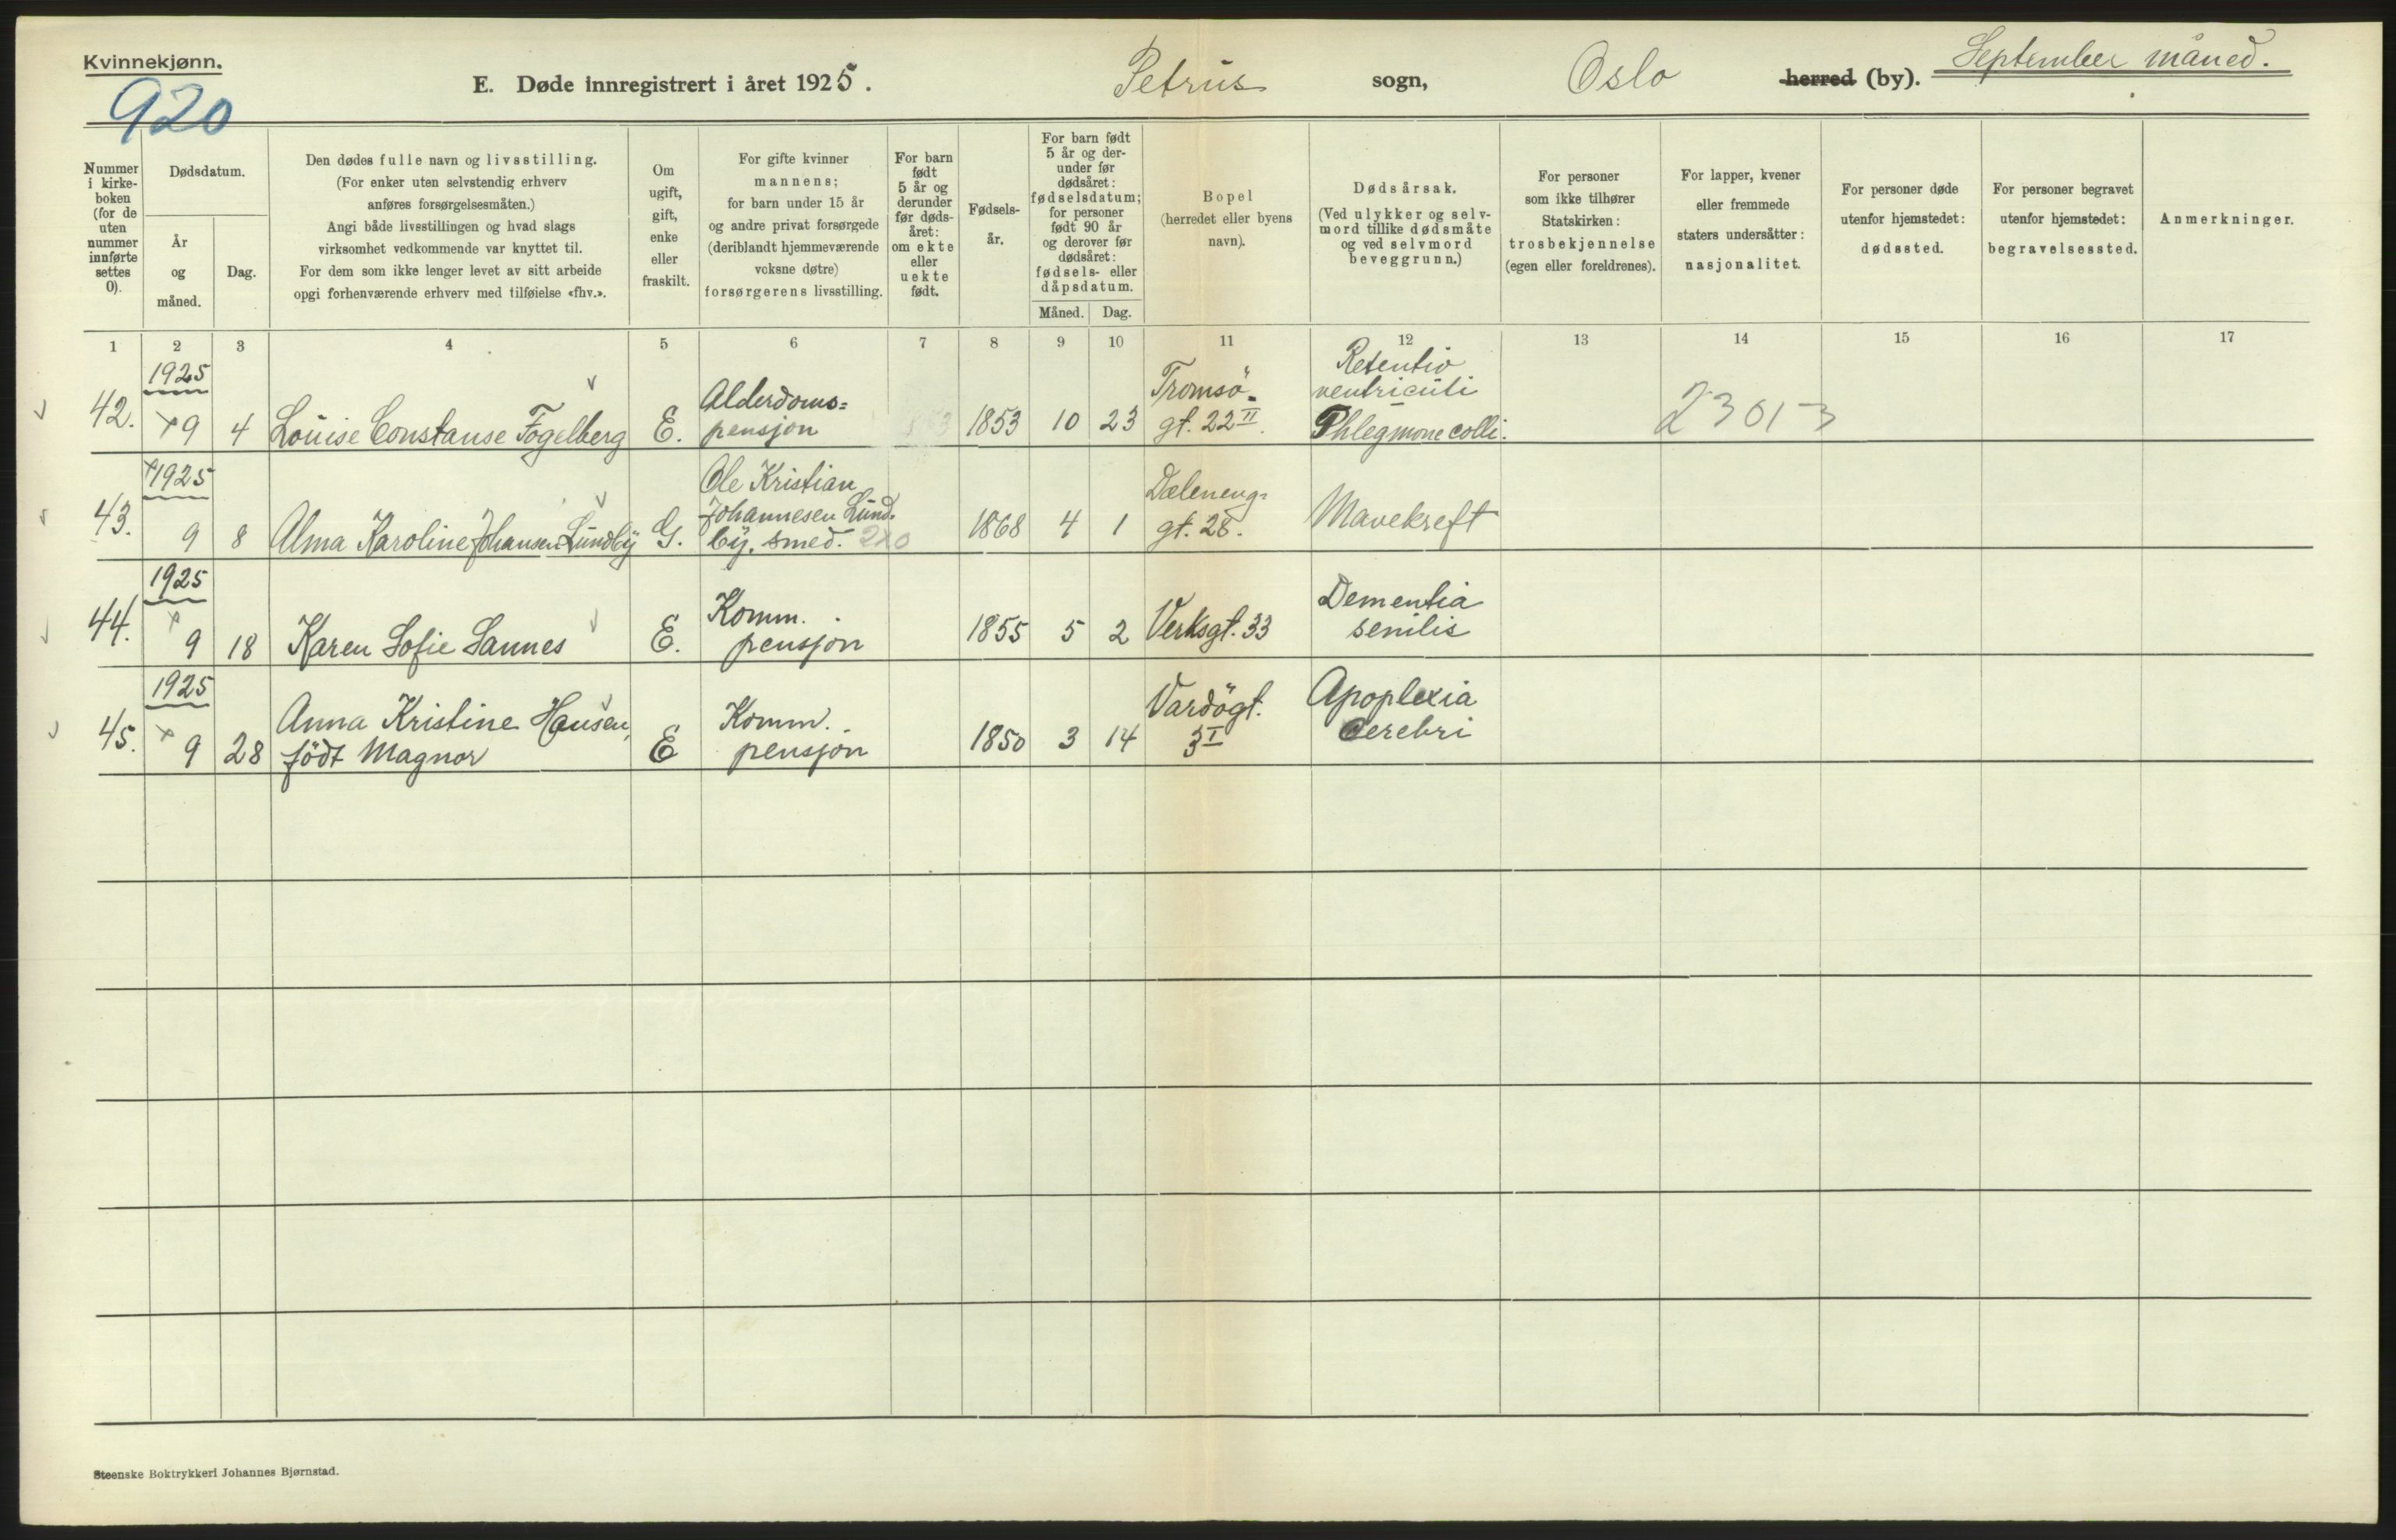 Kvinnekjønn.
920
E. Døde innregistrert i året 1925.
Petrus sogn, Oslo herred (by). September måned.
Nummer i kirke-boken (for de uten nummer innførte settes 0).
Dødsdatum.
År og måned.
Dag.
Den dødes fulle navn og livsstilling.
(For enker uten selvstendig erhverv
anføres forsørgelsesmåten.)
Angi både livsstillingen og hvad slags
virksomhet vedkommende var knyttet til.
For dem som ikke lenger levet av sitt arbeide
opgi forhenværende erhverv med tilføielse «fhv.».
Om ugift, gift, enke eller fraskilt.
For gifte kvinner
mannens;
for barn under 15 år
og andre privat forsørgede
(deriblandt hjemmeværende
voksne døtre)
forsørgerens livsstilling.
For barn født 5 år og derunder før døds-året: om ekte eller uekte født.
Fødsels-år.
For barn født 5 år og der-under før dødsåret: fødselsdatum; for personer født 90 år og derover før dødsåret: fødsels- eller dåpsdatum.
Måned. Dag.
Bopel
(herredet eller byens
navn).
Dødsårsak.
(Ved ulykker og selv-
mord tillike dødsmåte
og ved selvmord
beveggrunn.)
For personer
som ikke tilhører
Statskirken:
trosbekjennelse
(egen eller foreldrenes).
For lapper, kvener
eller fremmede
staters undersåtter:
nasjonalitet.
For personer døde
utenfor hjemstedet:
dødssted.
For personer begravet
utenfor hjemstedet:
begravelsessted.
Anmerkninger.
1 2 3 4 5 6 7 8 9 10 11 12 13 14 15 16 17
1925
42. 9 4 Louise Constanse Fogelberg E. Alderdoms=
pensjon 1853 10 23 Tromsö-
gt. 22 II. Retentio
ventriculi
Phlegmone colli. 23013
1925
43. 9 8 Alma Karoline Johansen Lundby G. Ole Kristian
Johannesen Lund-
by, smed. 220 1868 4 1 Dæleneng=
gt. 28. Mavekreft
1925
44. 9 18 Karen Sofie Sannes E. Komm.
pensjon 1855 5 2 Verksgt. 33 Dementia
senilis
1925
45. 9 28 Anna Kristine Hansen,
födt Magnor E Komm.
pensjon 1850 3 14 Vardögt.
3 I Apoplexia
cerebri
Steenske Boktrykkeri Johannes Bjørnstad.